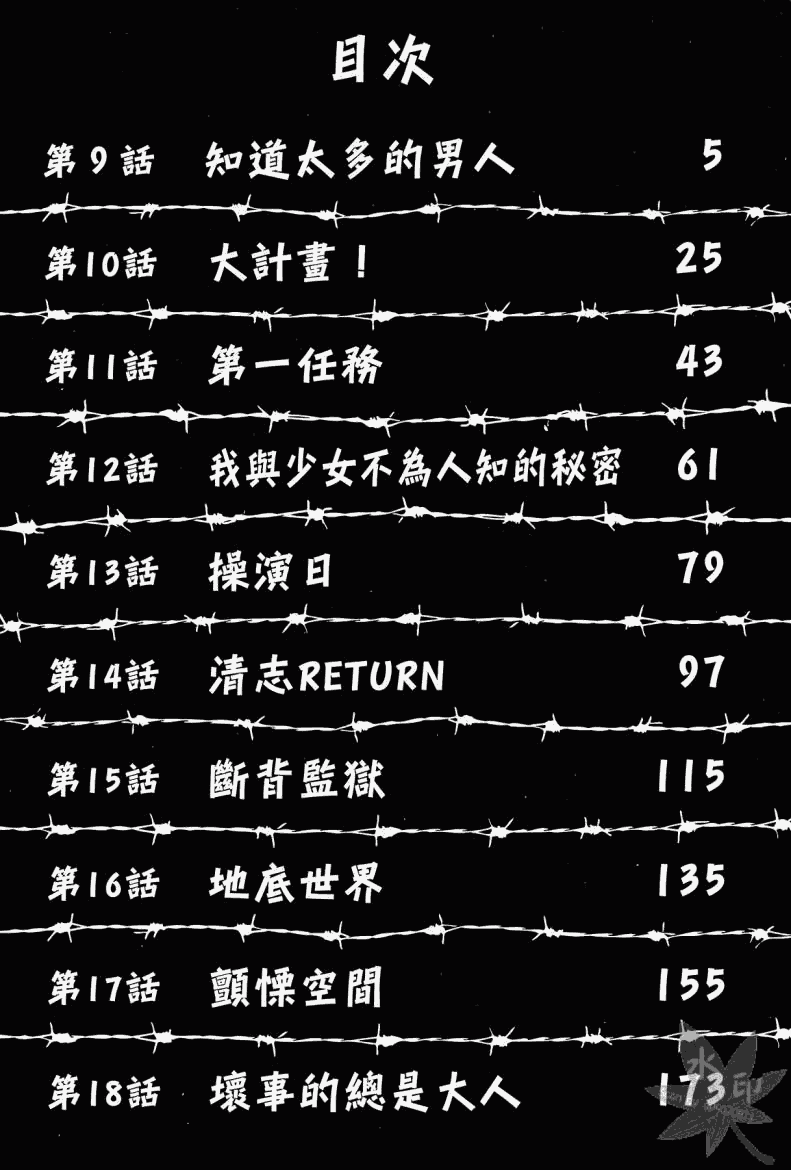 目次
第9話 知道太多的男人 5
第10話 大計畫！ 25
第11話 第一任務 43
第12話 我與少女不為人知的秘密 61
第13話 操演日 79
第14話 清志RETURN 97
第15話 斷背監獄 115
第16話 地底世界 135
第17話 顫慄空間 155
第18話 壞事的總是大人 173
水印